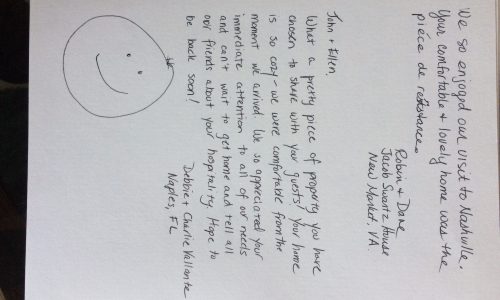 We so enjoyed our visit to Nashville.
Your comfortable & lovely home was the
pièce de résistance.
Robin & Dane
Jacob Swartz House
New Market, VA.
John & Ellen,
What a pretty piece of property you have
chosen to share with your guests! Your home
is so cozy - we were comfortable from the
moment we arrived. We so appreciated your
immediate attention to all of our needs
and can't wait to get home and tell all
our friends about your hospitality. Hope to
be back soon!
Debbie & Charlie Vallante
Naples, FL